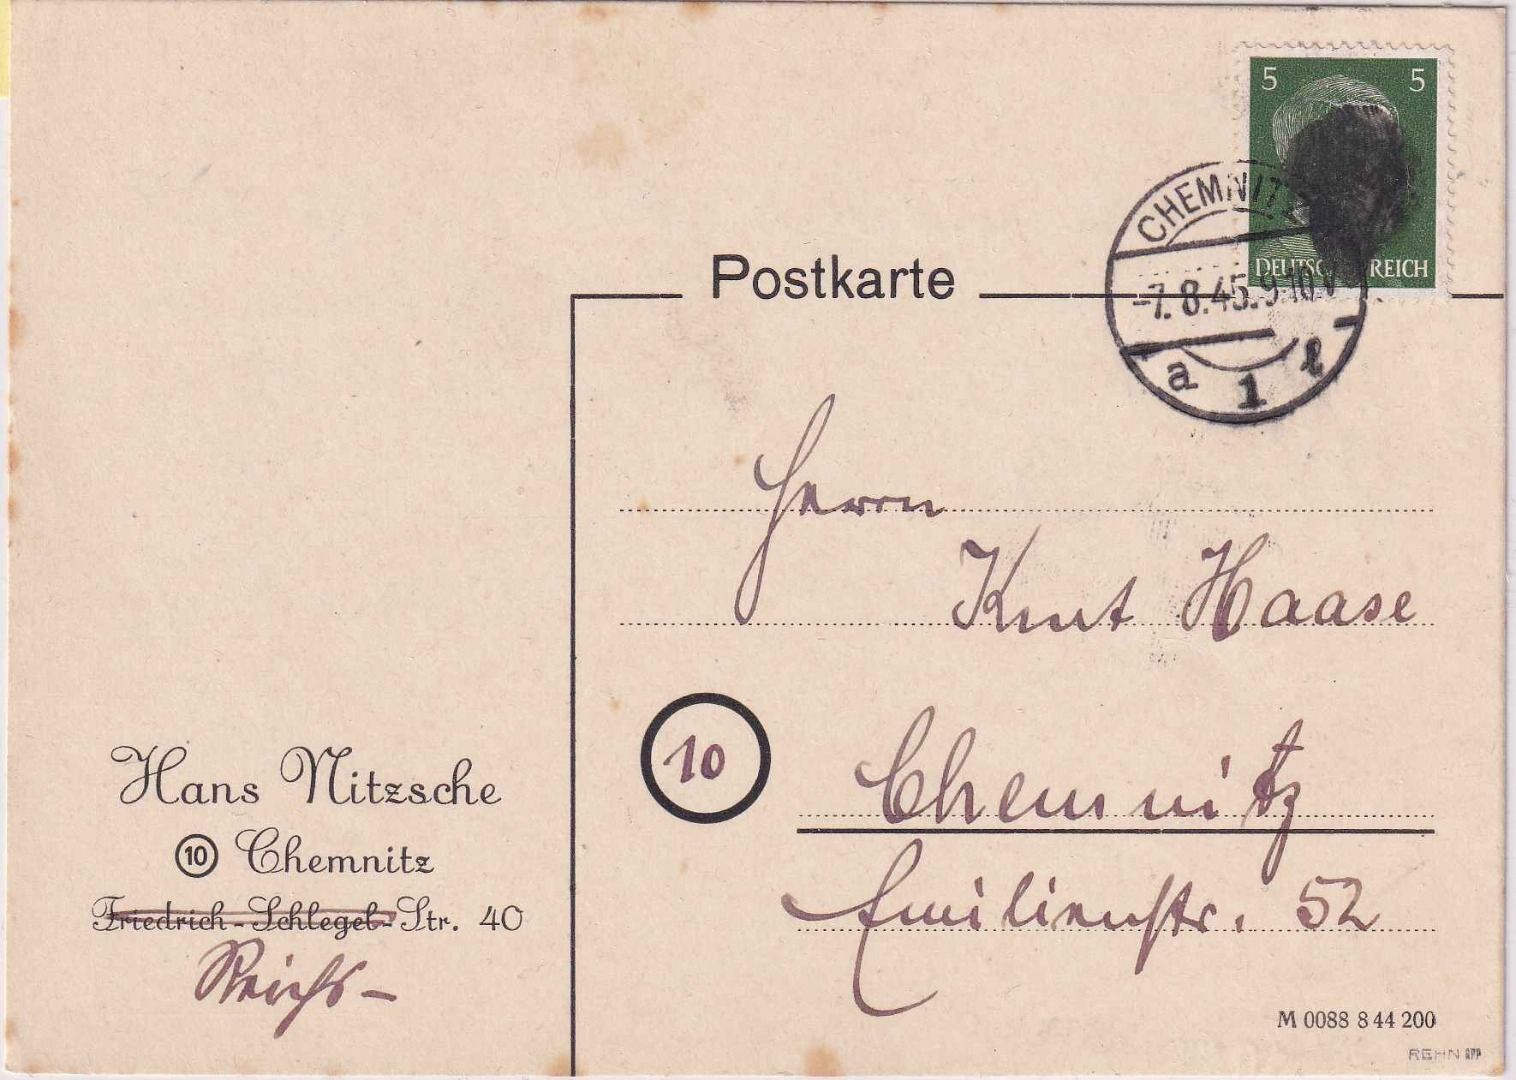 5 5
DEUTSCHES REICH
CHEMNITZ
-7.8.45.9-10V
a 1 l
Postkarte
Herrn
Kurt Haase
10
Chemnitz
Emilienstr. 52
Hans Nitzsche
10 Chemnitz
Friedrich-Schlegel-Str. 40
Reichs-
M 0088 8 44 200
REHN